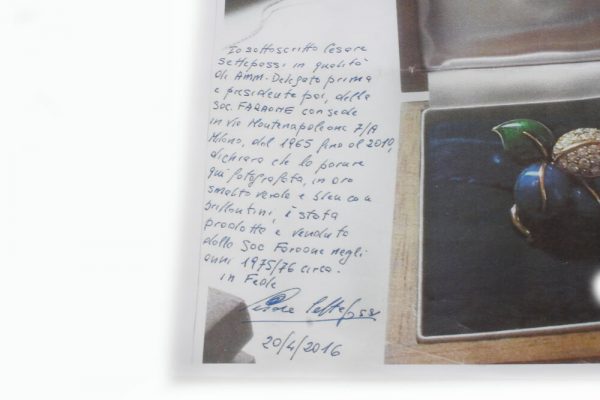 Io sottoscritto Cesare
Settepassi in qualità
di Amm. Delegato prima
e presidente poi, della
Soc. FARAONE con sede
in Via Montenapoleone 7/A
Milano, dal 1965 fino al 2010,
dichiaro che la parure
qui fotografata, in oro
smalto verde e bleu con
brillantini, è stata
prodotta e venduta
dalla Soc Faraone negli
anni 1975/76 circa.
in Fede
Cesare Settepassi
20/4/2016